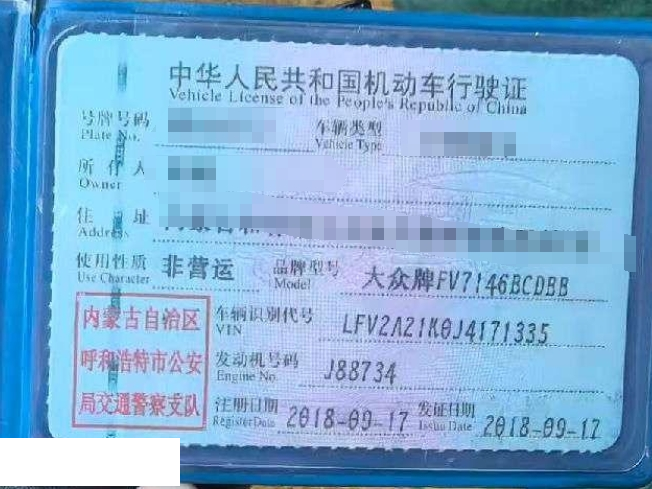 中华人民共和国机动车行驶证
Vehicle License of the People's Republic of China
号牌号码 车辆类型
Plate No. Vehicle Type
所有人
Owner
住址
Address
使用性质 非营运 品牌型号 大众牌FV7146BCDBB
Use Character Model
内蒙古自治区
呼和浩特市公安
局交通警察支队
车辆识别代号 LFV2A21K0J4171335
VIN
发动机号码 J88734
Engine No.
注册日期 2018-09-17 发证日期 2018-09-17
Register Date Issue Date